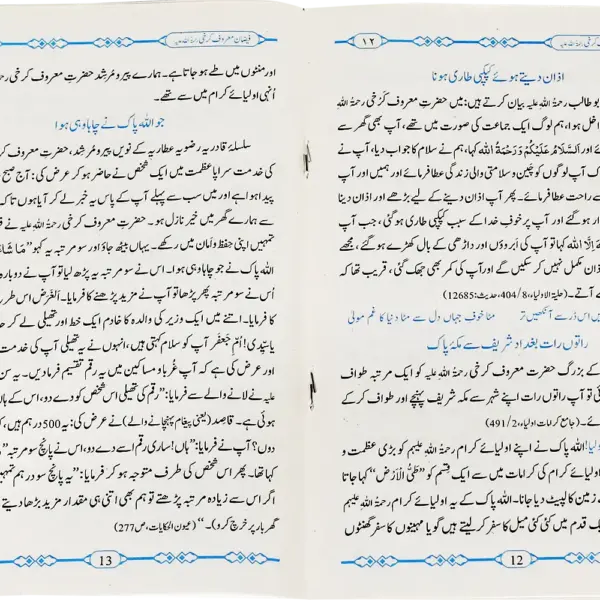 کرخی رحمۃ اللہ علیہ
۱۲
اذان دیتے ہوئے کپکپی طاری ہونا
بو طالب رحمۃُ اللہِ علیہ بیان کرتے ہیں: میں حضرتِ معروف کَرْخی رحمۃُ اللہِ
اخل ہوا، ہم لوگ ایک جماعت کی صورت میں تھے، آپ بھی گھر سے
ئے اور اَلسَّلَامُ عَلَیْکُمْ وَرَحْمَۃُ اللہ کہا، ہم نے سلام کا جواب دیا، آپ نے
ک آپ لوگوں کو چین و سلامتی والی زندگی عطا فرمائے اور ہمیں اور آپ
سے راحت عطا فرمائے۔ پھر آپ اذان دینے کے لیے بڑھے اور اذان دینا
ار ہو گئے اور آپ پر خوفِ خدا کے سبب کپکپی طاری ہو گئی، جب آپ
ہَ اِلَّا اللہ کہا تو آپ کی اَبروؤں اور داڑھی کے بال کھڑے ہو گئے، مجھے
اذان مکمل نہیں کر سکیں گے اور آپ کی کمر بھی جھک گئی، قریب تھا کہ
ے آتے۔ (حلیۃ الاولیاء، 8/404، حدیث: 12685)
یں اس ڈر سے آنکھیں تر منا خوفِ جہاں دل سے مٹا دنیا کا غم مولیٰ
راتوں رات بغداد شریف سے مکۂ پاک
کے بزرگ حضرت معروف کرخی رحمۃُ اللہِ علیہ کو ایک مرتبہ طواف
ئی تو آپ راتوں رات اپنے شہر سے مکہ شریف پہنچے اور طواف کر کے
ئے۔ (جامع کرامات اولیاء، 2/491)
ولیا! اللہ پاک نے اپنے اولیائے کرام رحمۃُ اللہِ علیہم کو بڑی عظمت و
اولیائے کرام کی کرامات میں سے ایک قسم کو ”طَیُّ الْاَرْض“ کہا جاتا
زمین کا لپیٹ دیا جانا۔ اللہ پاک کے یہ اولیائے کرام رحمۃُ اللہِ علیہم
یک قدم میں کئی کئی میل کا سفر کر لیتے ہیں گویا مہینوں کا سفر گھنٹوں
12
فیضانِ معروف کرخی رحمۃ اللہ علیہ
اور منٹوں میں طے ہو جاتا ہے۔ ہمارے پیر و مُرشد حضرتِ معروف کرخی رحم
اُنہی اولیائے کرام میں سے تھے۔
جو اللہ پاک نے چاہا وہی ہوا
سلسلۂ قادریہ رضویہ عطاریہ کے نویں پیر و مُرشد، حضرت معروف کر
کی خدمت سراپا عظمت میں ایک شخص نے حاضر ہو کر عرض کی: آج صبح
پیدا ہوا ہے اور میں سب سے پہلے آپ کے پاس یہ خبر لے کر آیا ہوں تاکہ
سے ہمارے گھر میں خیر نازل ہو۔ حضرت معروف کرخی رحمۃُ اللہِ علیہ نے ف
تمہیں اپنی حفظ و اَمان میں رکھے۔ یہاں بیٹھ جاؤ اور سو مرتبہ یہ کہو ”مَا شَاءَ
اللہ پاک نے جو چاہا وہی ہوا۔ اس نے سو مرتبہ یہ پڑھ لیا تو آپ نے دوبارہ
اُس نے سو مرتبہ پھر پڑھا تو آپ نے مزید پڑھنے کا فرمایا۔ اَلغَرَض اس طرح
کا فرمایا۔ اتنے میں ایک وزیر کی والدہ کا خادم ایک خط اور تھیلی لے کر حا
یا سَیِّدی! اُمِّ جَعفَر آپ کو سلام کہتی ہیں، انہوں نے یہ تھیلی آپ کی خدمت
اور عرض کی ہے کہ آپ غُربا و مساکین میں یہ رقم تقسیم فرما دیں۔ یہ سن
علیہ نے لانے والے سے فرمایا: ”رقم کی تھیلی اس شخص کو دے دو، اس کے ہاں
ہوئی ہے۔ قاصد (یعنی پیغام پہنچانے والے) نے عرض کی: یہ 500 درہم ہیں، ک
دوں؟ آپ نے فرمایا: ”ہاں! ساری رقم اسے دے دو، اس نے پانچ سو مرتبہ ”
کہا تھا۔ پھر اس شخص کی طرف متوجہ ہو کر فرمایا: ”یہ پانچ سو درہم تمہیں
اگر اس سے زیادہ مرتبہ پڑھتے تو ہم بھی اتنی ہی مقدار مزید بڑھا دیتے
گھر بار پر خرچ کرو)۔“ (عیون الحکایات، ص277)
13